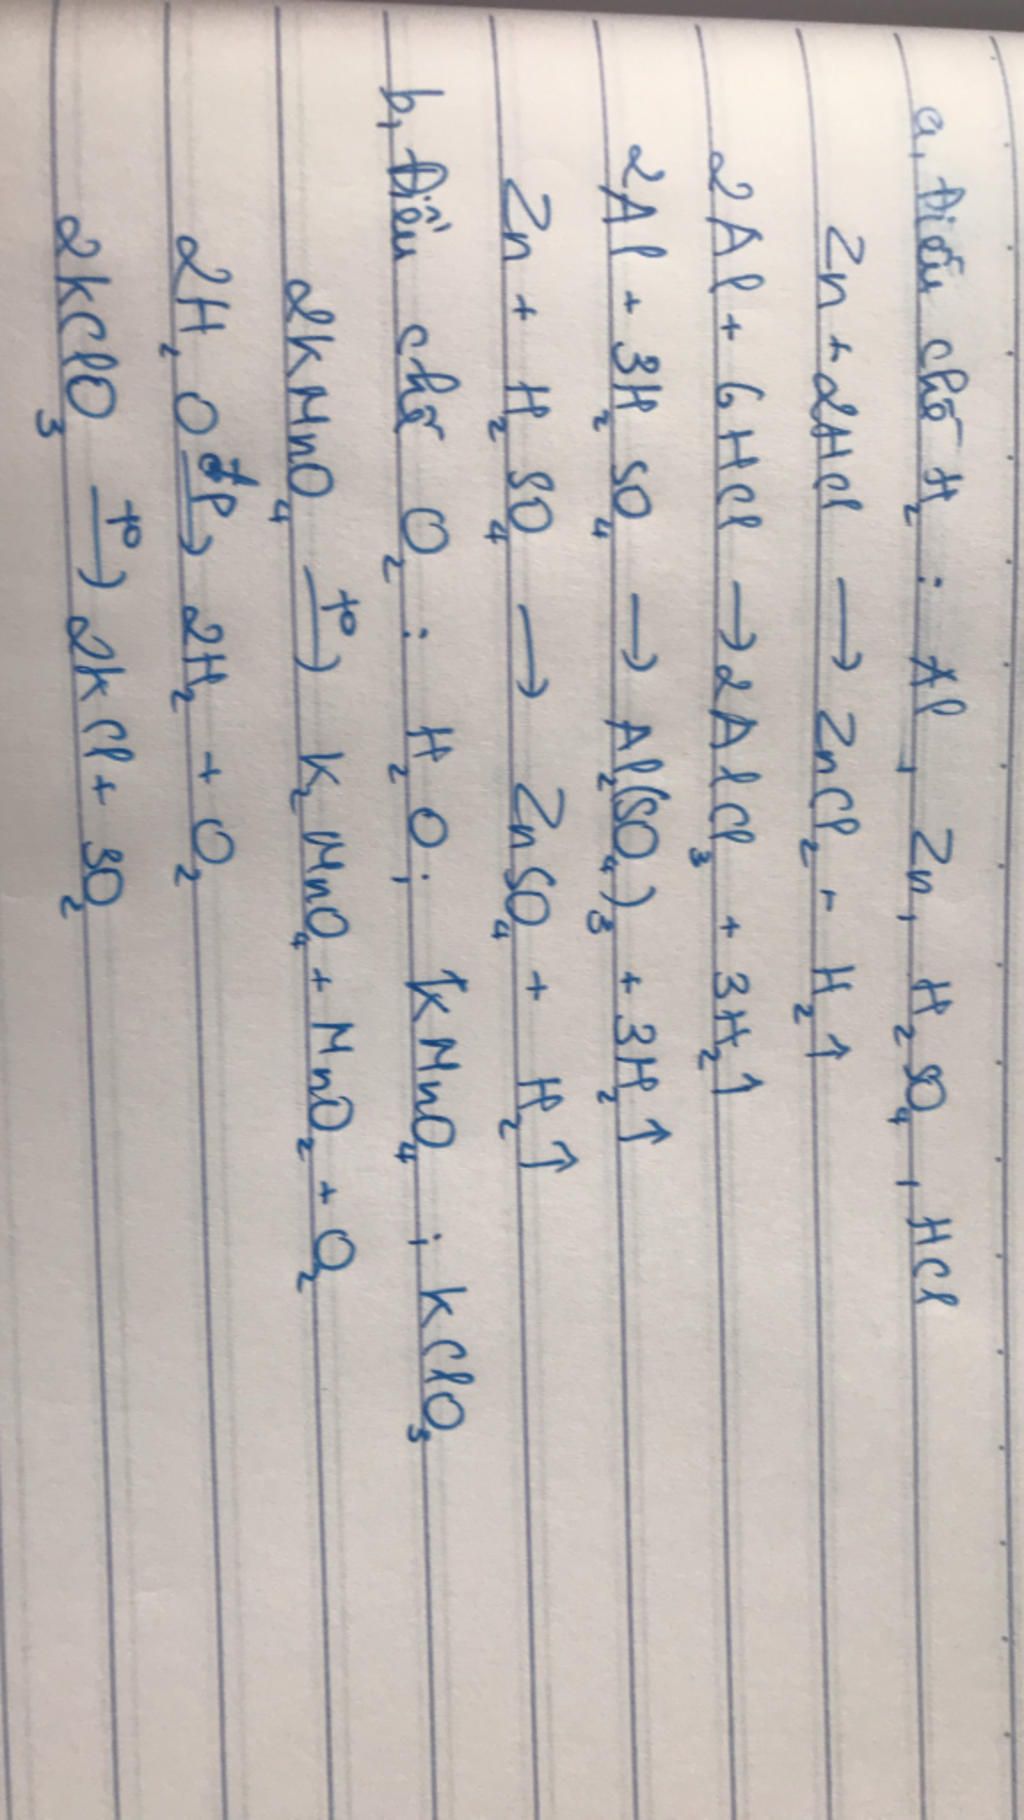 a, Điều chế H₂ : Al, Zn, H₂SO₄, HCl
Zn + 2HCl → ZnCl₂ + H₂↑
2Al + 6HCl → 2AlCl₃ + 3H₂↑
2Al + 3H₂SO₄ → Al₂(SO₄)₃ + 3H₂↑
Zn + H₂SO₄ → ZnSO₄ + H₂↑
b, Điều chế O₂ : H₂O; KMnO₄; KClO₃
2KMnO₄ –t°→ K₂MnO₄ + MnO₂ + O₂
2H₂O –đp→ 2H₂ + O₂
2KClO₃ –t°→ 2KCl + 3O₂